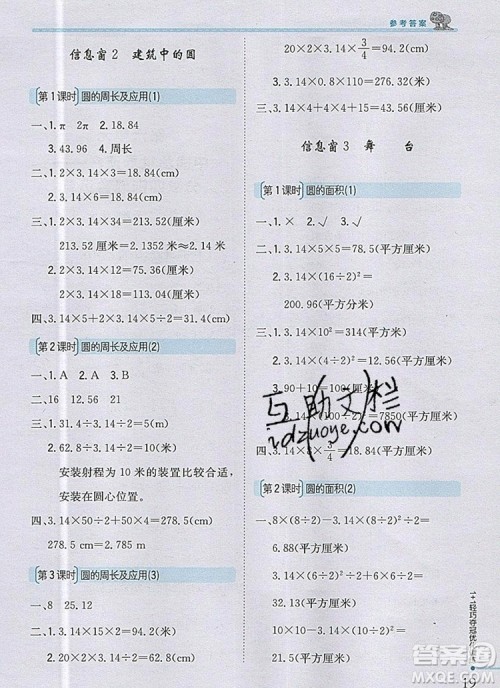 参考答案
信息窗2 建筑中的圆
第1课时 圆的周长及应用(1)
一、1.π 2π 2.18.84
3.43.96 4.周长
二、2×3.14×3=18.84(cm)
3.14×6=18.84(cm)
三、1.2×3.14×34=213.52(厘米)
213.52厘米=2.1352米
2.2×3.14×12=75.36(厘米)
3.2×3.14×18=113.04(厘米)
四、3.14×5+2×3.14×5÷2=31.4(cm)
第2课时 圆的周长及应用(2)
一、1.A 2.B 3.A
二、16 12.56 21
三、1.31.4÷3.14÷2=5(米)
2.62.8÷3.14÷2=10(米)
安装射程为10米的装置比较合适,
安装在圆心位置。
四、3.14×50÷2+50×4=
278.5(cm)=2.785m
第3课时 圆的周长及应用(3)
一、8 25.12
二、3.14×15×2=94.2(米)
三、2×3.14×20÷2=62.8(厘米)
四、2×3.14×20×3/4=94.2(厘米)
20×2×3.14×3/4=
94.2(厘米)
3.14×4+4×4+15=43.56(cm)
信息窗3 舞台
第1课时 圆的面积(1)
一、1.× 2.√ 3.√
二、1.3.14×5²=78.5(平方厘米)
2.3.14×(16÷2)²=
200.96(平方厘米)
三、1.3.14×10²=314(平方米)
2.3.14×(6÷2)²=28.26(平方米)
3.90+10=100(厘米)
3.14×(100÷2)²=7850(平方厘米)
=18.84(平方厘米)
互助文栏
idzuoye.com
第2课时 圆的面积(2)
一、8×(8÷2)-3.14×(8÷2)²÷2=
6.88(平方厘米)
二、3.14×(2÷2)²÷2=
1.57(平方厘米)
三、10×10-3.14×(10÷2)²=
21.5(平方厘米)
1+1轻巧夺冠优化
19
答案圈
MXQE.COM